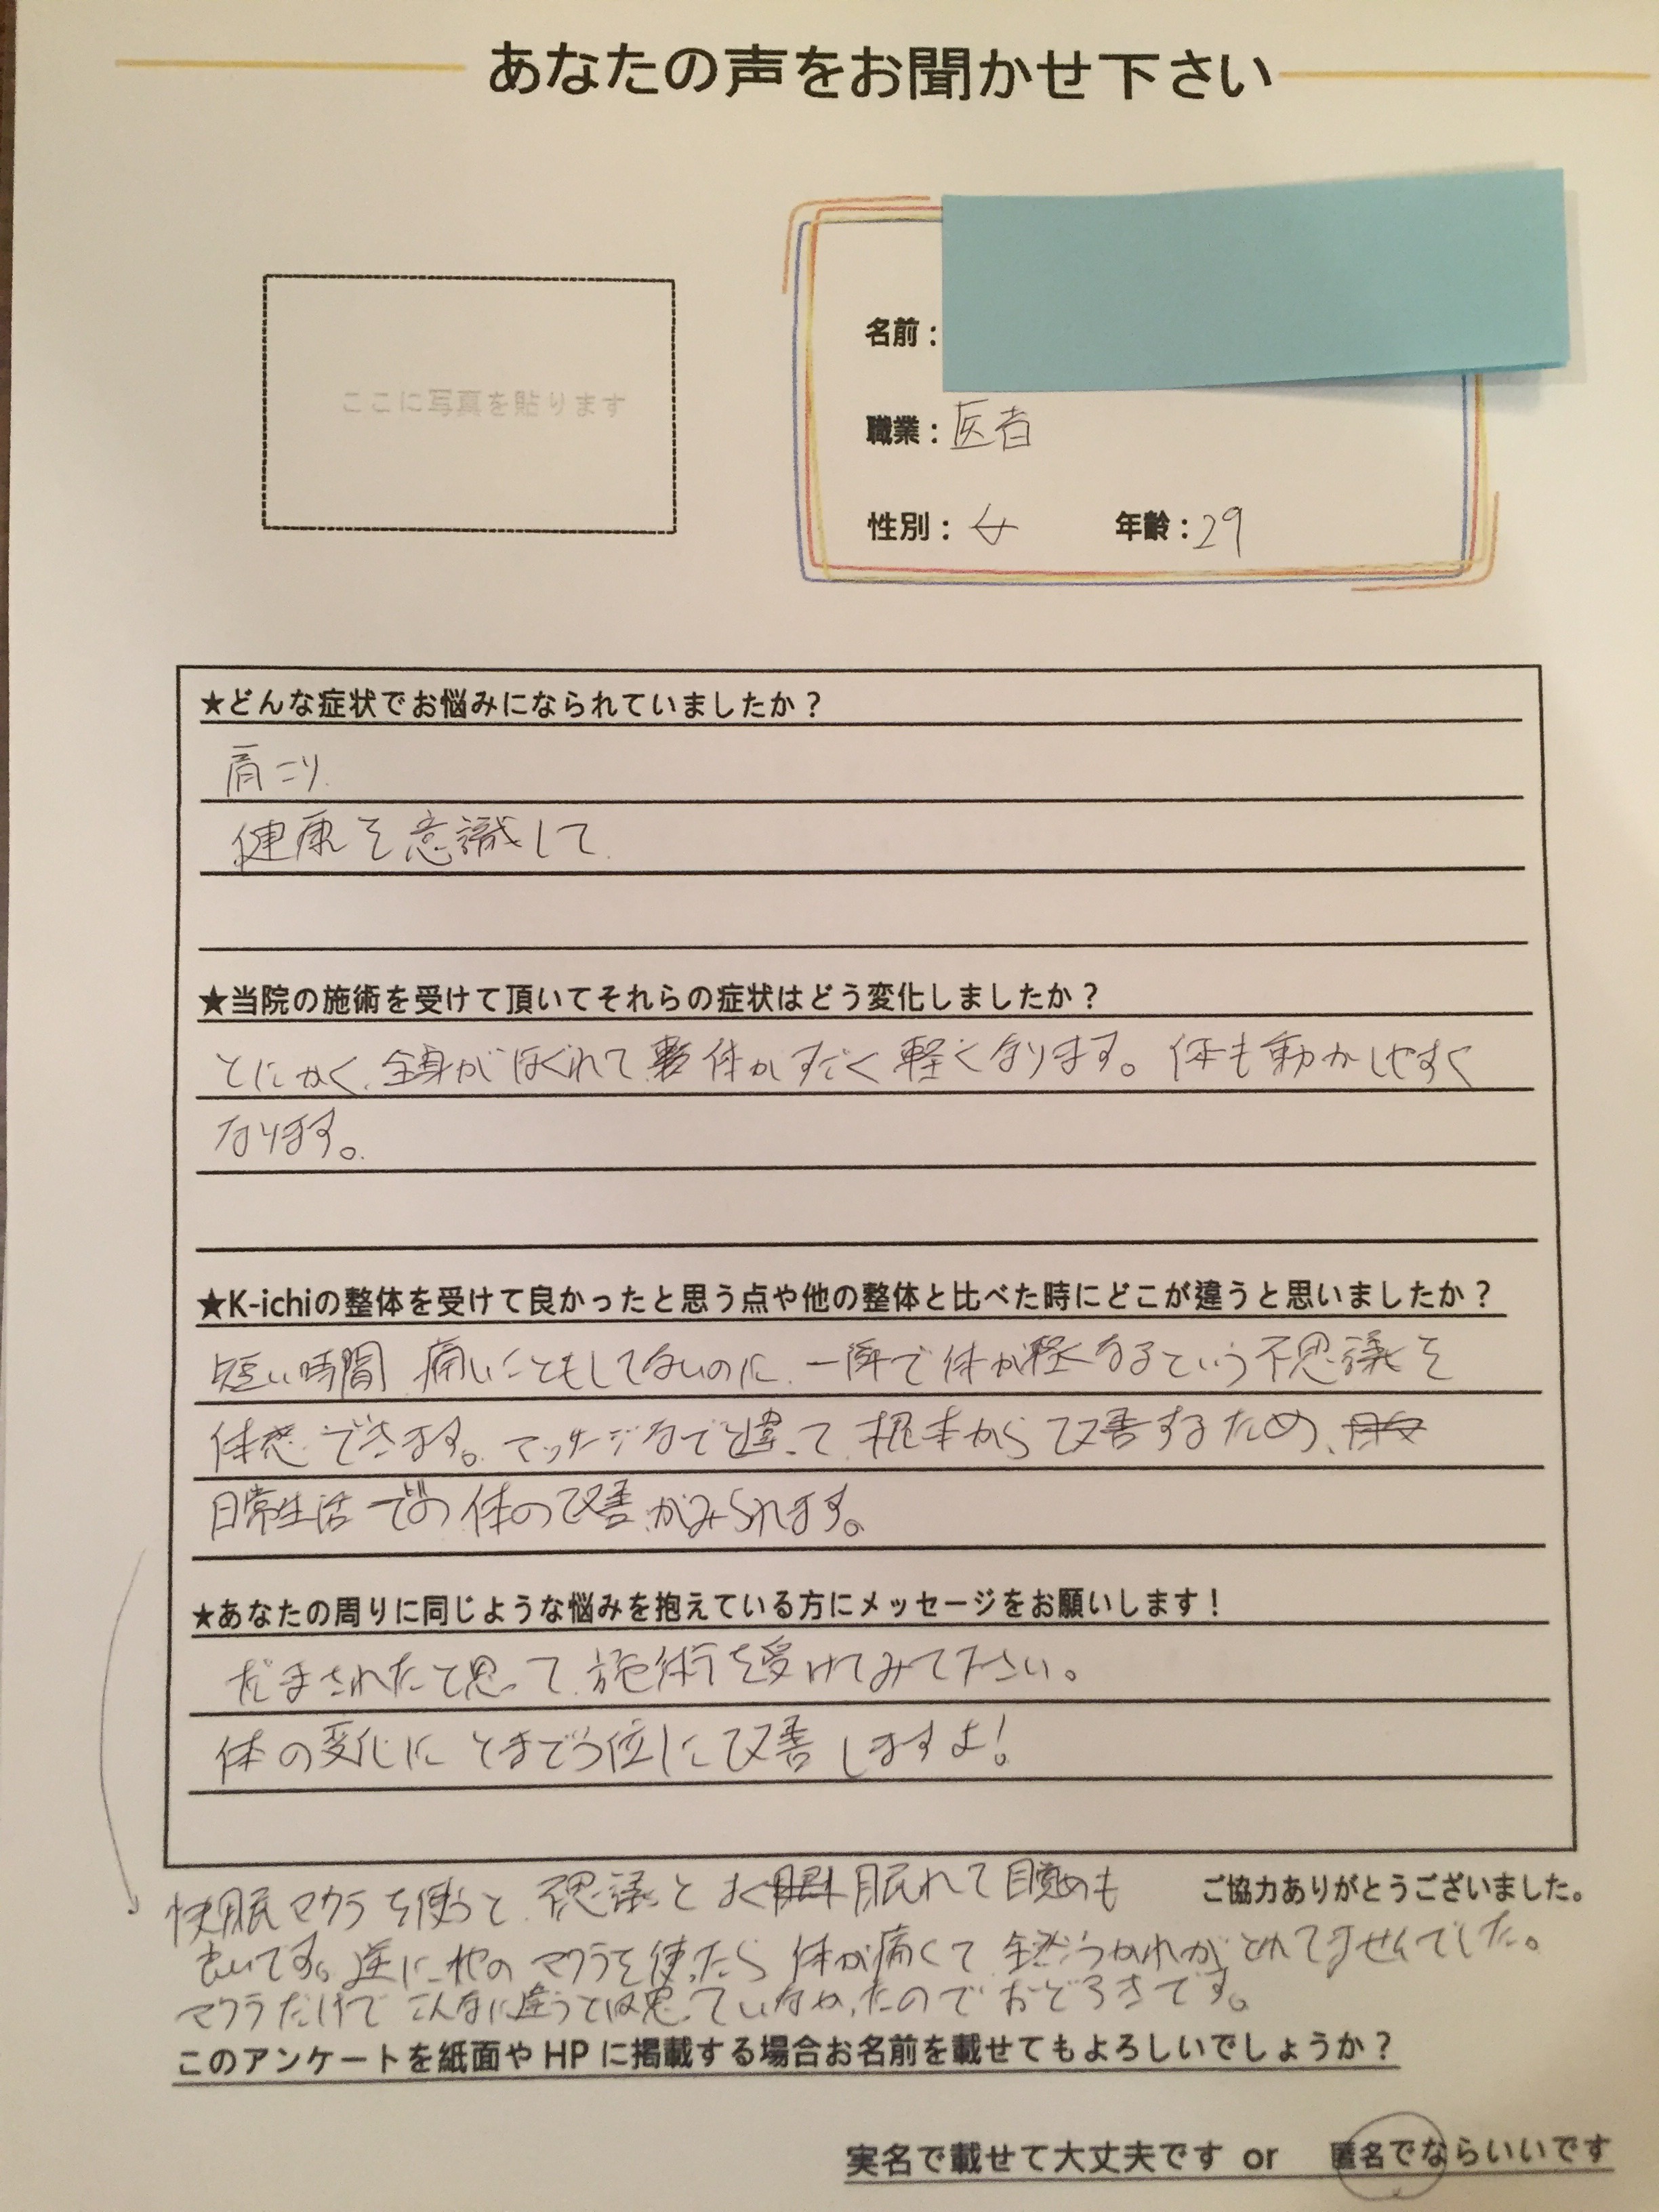 あなたの声をお聞かせ下さい
ここに写真を貼ります
名前：
職業：医者
性別：女 年齢：29
★どんな症状でお悩みになられていましたか？
肩こり
健康を意識して
★当院の施術を受けて頂いてそれらの症状はどう変化しましたか？
とにかく、全身がほぐれて 体がすごく軽くなります。体も動かしやすく
なります。
★K-ichiの整体を受けて良かったと思う点や他の整体と比べた時にどこが違うと思いましたか？
短い時間、痛いこともしてないのに、一瞬で体が軽くなるという不思議を
体感できます。マッサージなどと違って、根本から改善するため、
日常生活での体の改善がみられます。
★あなたの周りに同じような悩みを抱えている方にメッセージをお願いします！
だまされたと思って、施術を受けてみて下さい。
体の変化にとまどう位に改善しますよ！
快眠マクラを使うと、不思議とよく 眠れて目覚めも
良いです。逆に、他のマクラを使ったら体が痛くて全然つかれがとれてませんでした。
マクラだけでこんなに違うとは思っていなかったのでおどろきです。
ご協力ありがとうございました。
このアンケートを紙面やHPに掲載する場合お名前を載せてもよろしいでしょうか？
実名で載せて大丈夫です or 匿名でならいいです